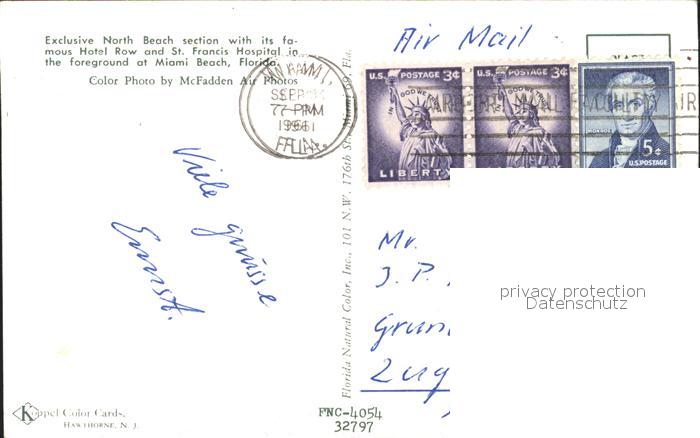 Exclusive North Beach section with its fa-
mous Hotel Row and St. Francis Hospital in
the foreground at Miami Beach, Florida.
Color Photo by McFadden Air Photos
Air Mail
U.S. POSTAGE 3¢
IN GOD WE TRUST
LIBERTY
U.S. POSTAGE 3¢
IN GOD WE TRUST
MONROE
5¢
U.S. POSTAGE
1961
Viele grüsse
Ernst.
Florida Natural Color, Inc., 101 N.W. 176th St., Miami 69, Fla.
Mr.
J. P.
Zug
privacy protection
Datenschutz
Koppel Color Cards.
HAWTHORNE, N. J.
FNC-4054
32797